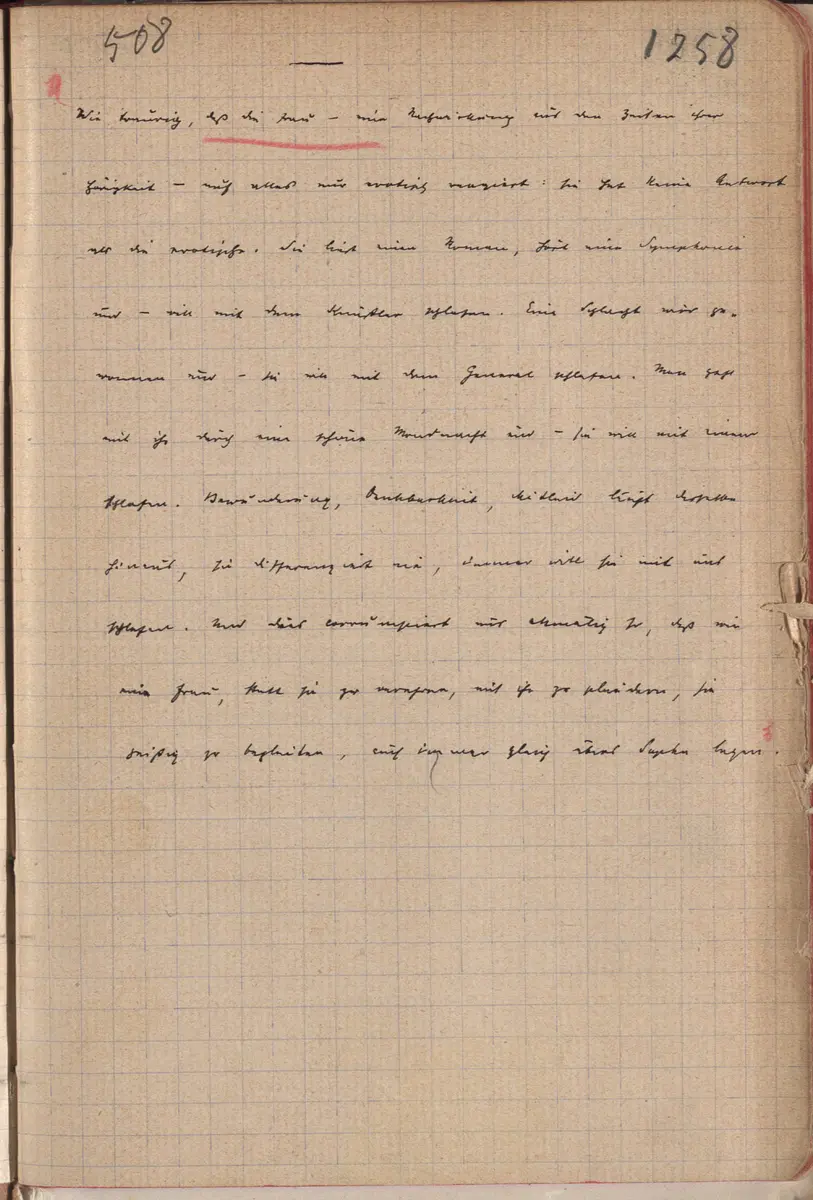 508
1258
Wie traurig, daß die Frau – eine Nachwirkung aus den Zeiten ihrer
Hörigkeit – auf alles nur erotisch reagiert: sie hat keine Antwort
als die erotische. Sie liest einen Roman, hört eine Symphonie
und – will mit dem Künstler schlafen. Eine Schlacht wird ge-
wonnen und – sie will mit dem General schlafen. Man geht
mit ihr durch eine schöne Mondnacht und – sie will mit einem
schlafen. Bewunderung, Dankbarkeit, Mitleid läuft
hinaus, sie differenziert nie, immer will sie mit uns
schlafen. Und das corrumpiert uns allmälig so, daß wir
eine Frau, statt sie zu verehren, mit ihr zu plaudern, sie
zu begleiten, auch immer gleich übers Sopha legen.